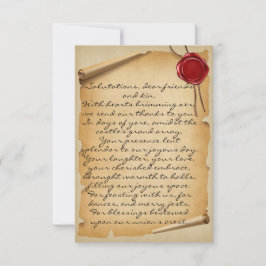 Salutations, dear friends
and kin,
With hearts brimming o'er,
we send our thanks to you
In days of yore, amidst the
castle's grand array,
Your presence lent
splendor to our joyous day.
Your laughter, your love,
your cherished embrace,
Brought warmth to halls,
filling our joyous space.
For feasting with us, for
dances, and merry jests,
For blessings bestowed
upon our union's crest